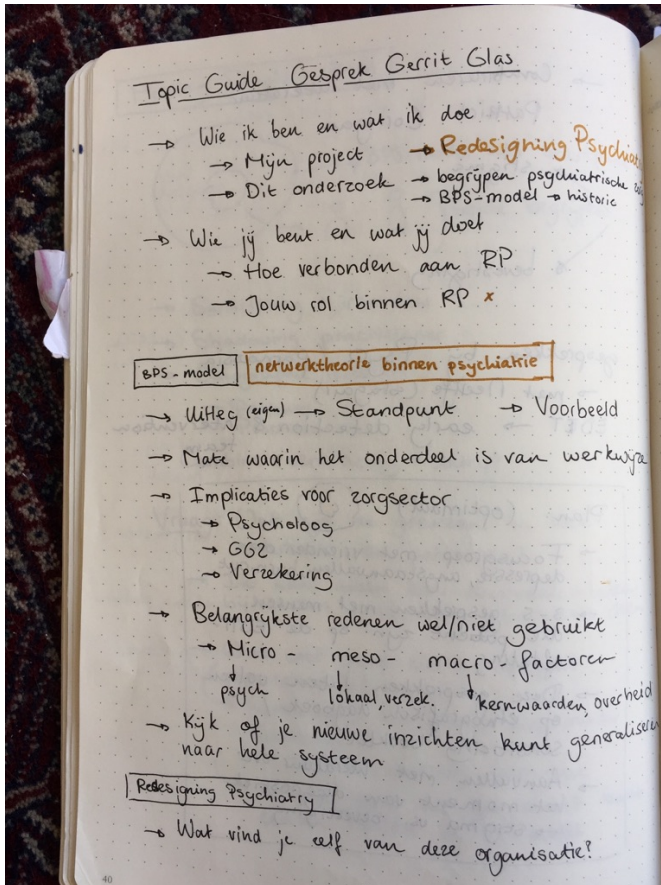 Topic Guide Gesprek Gerrit Glas
→ Wie ik ben en wat ik doe
→ Mijn project → Redesigning Psychiat
→ Dit onderzoek → begrijpen psychiatrische
→ BPS-model → historie
→ Wie jij bent en wat jij doet
→ Hoe verbonden aan RP
→ Jouw rol binnen RP x
BPS-model netwerktheorie binnen psychiatrie
→ Uitleg (eigen) → Standpunt → Voorbeeld
→ Mate waarin het onderdeel is van werkwijze
→ Implicaties voor zorgsector
→ Psycholoog
→ GGZ
→ Verzekering
→ Belangrijkste redenen wel/niet gebruikt
→ Micro- meso- macro-factoren
↓ ↓ ↓
psych lokaal, verzek. kernwaarden, overheid
→ Kijk of je nieuwe inzichten kunt generaliseren
naar hele systeem
Redesigning Psychiatry
→ Wat vind je zelf van deze organisatie?
40